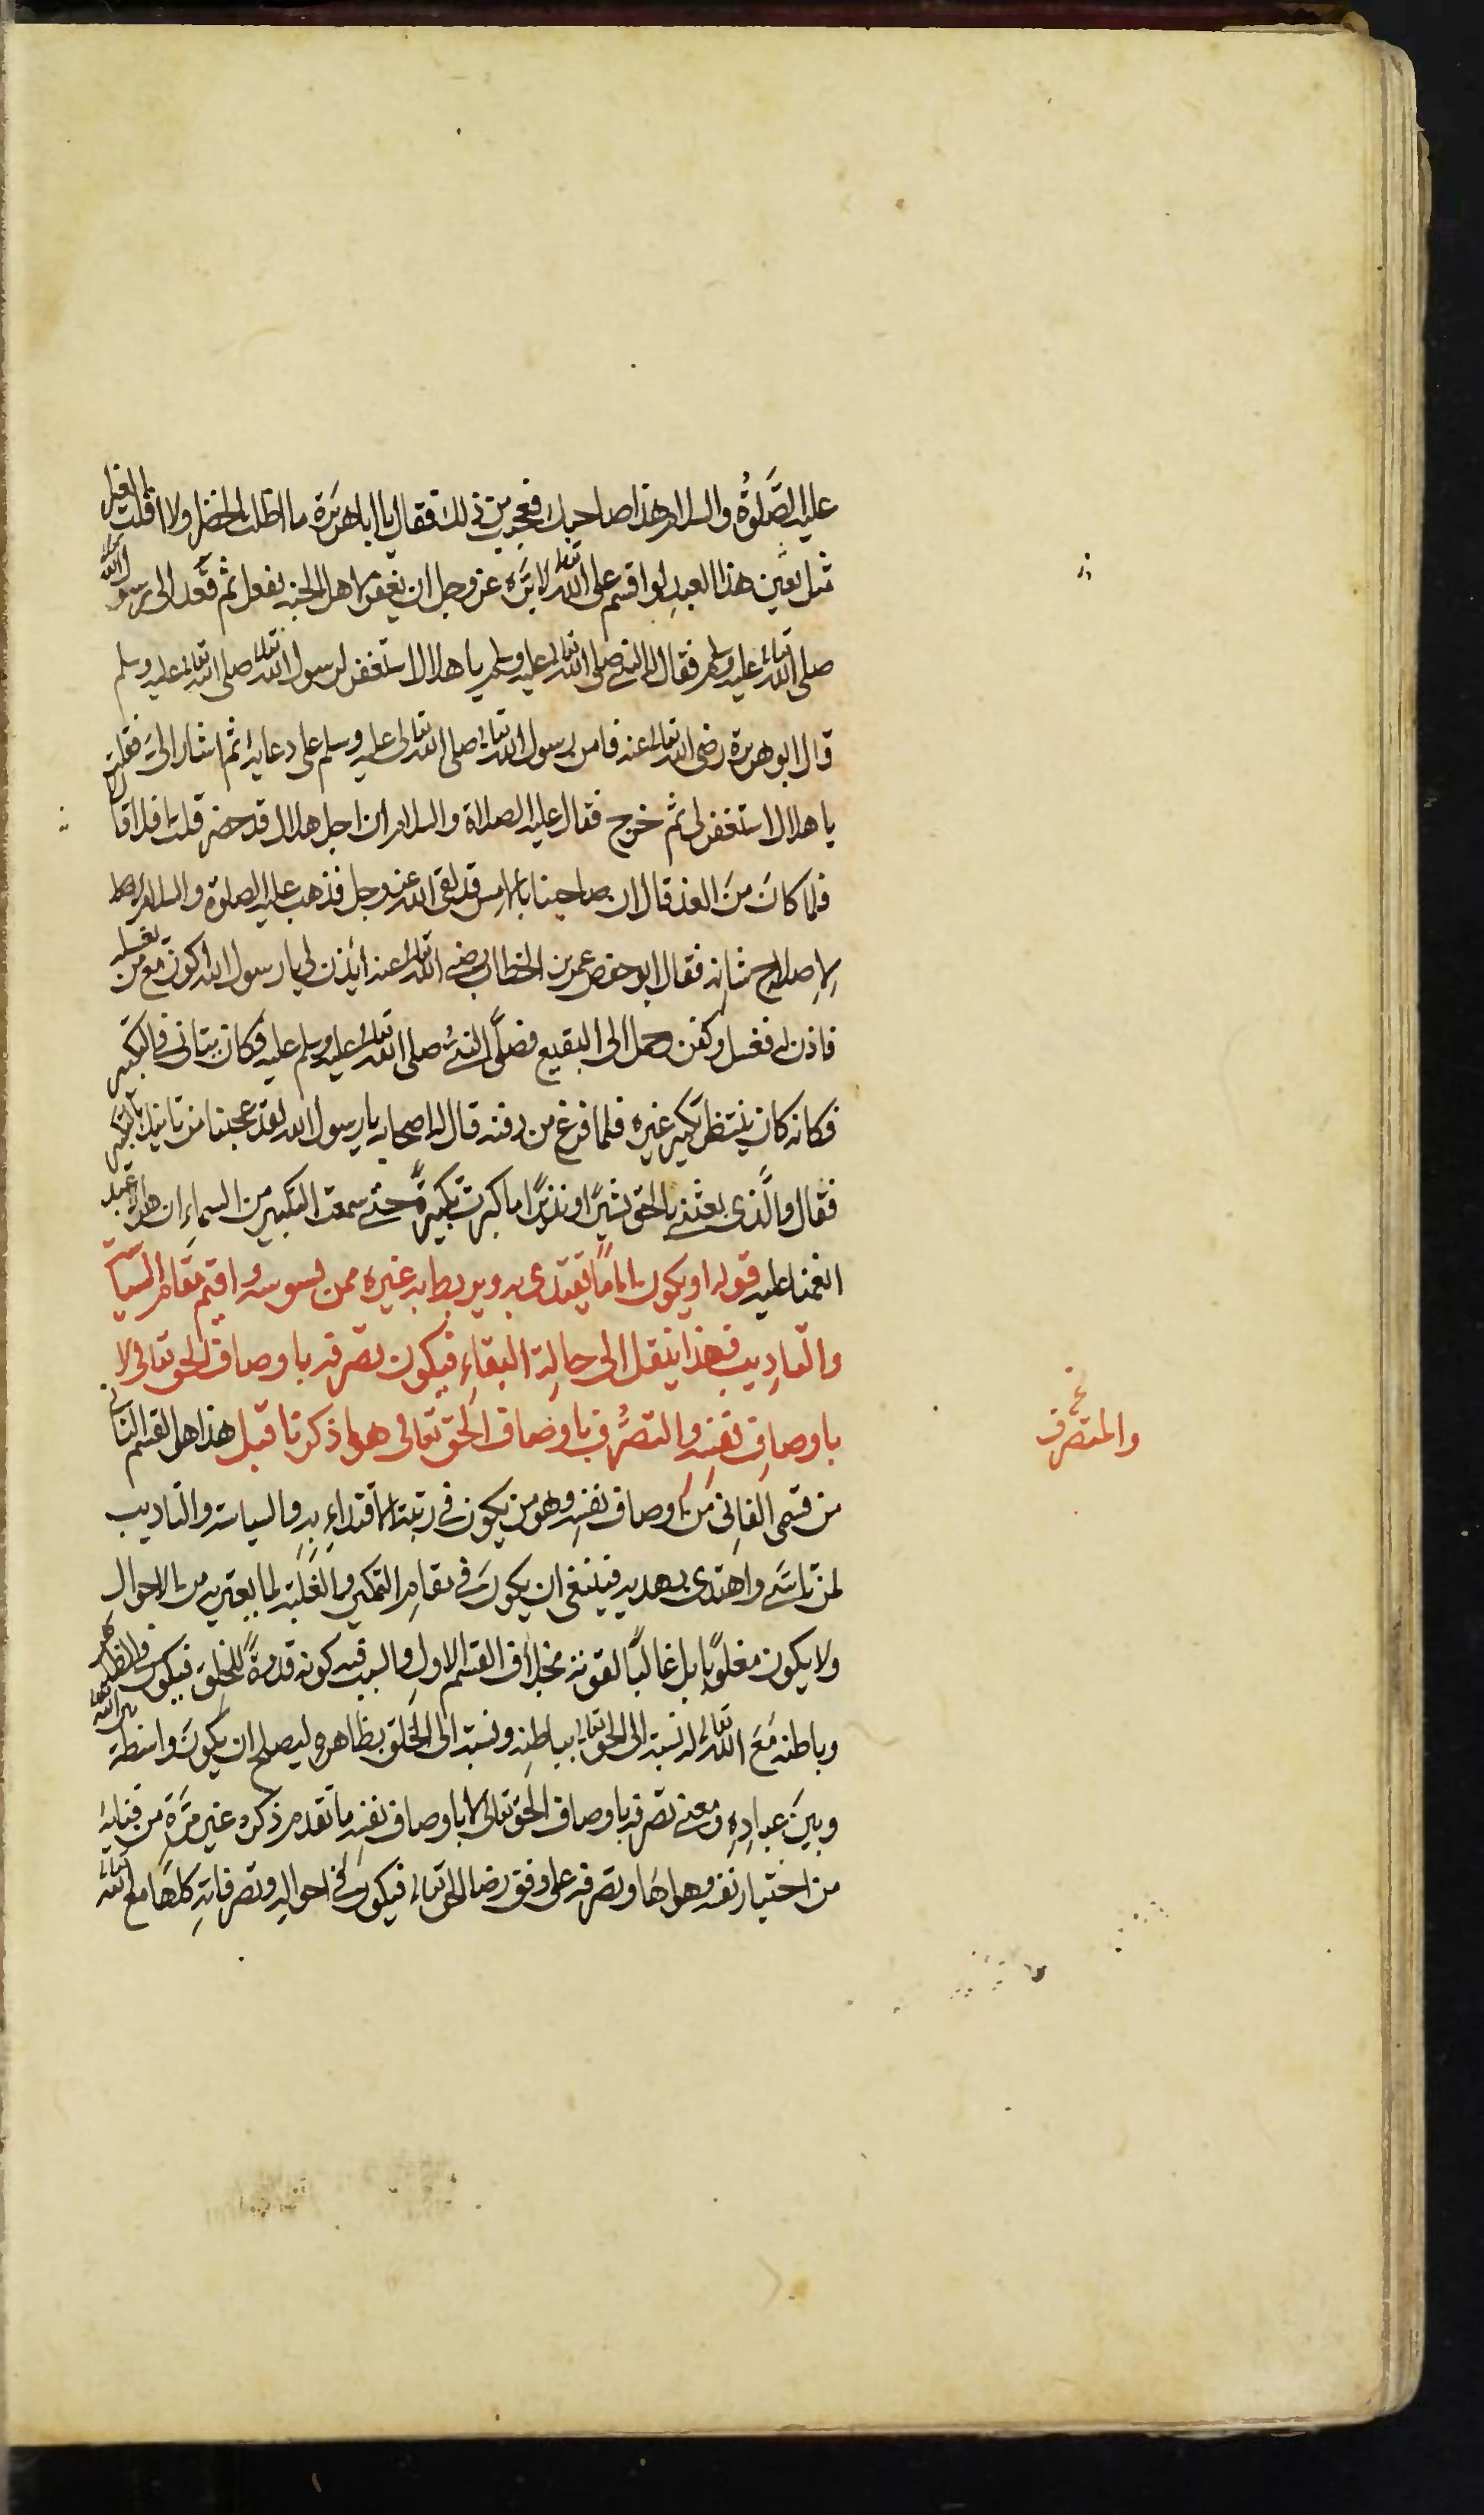 عليه الصَّلوةُ والسلام هذا صاحبك فعجبت من ذلك فقال يا ابا هريرة ما اظلت الخضرا ولا اقلت الغبرا
مثل بعين هذا العبدِ لو اقسم على الله تعالى لابرَّه عز وجل ان يغفر لاهل الجنة لفعل ثم قعد الى رسول الله
صلى الله تعالى عليه وسلم فقال له النبي صلى الله تعالى عليه وسلم يا هلال استغفر لرسول الله تعالى صلى الله تعالى عليه وسلم
قال ابو هريرة رضى الله تعالى عنه فامن رسول الله تعالى صلى الله تعالى عليه وسلم على دعايه ثم اشار الىَّ فقلت
يا هلال استغفر لى ثم خرج فقال عليه الصلاة والسلام ان اجل هلال قد حضر قلت افلا قال لا
فلما كانَ منَ الغد قال ان صاحبنا بالامس قد لقى الله عز وجل فذهب عليه الصلوة والسلام
لاِصلاح شانه فقال ابو حفص عمر بن الخطاب رضى الله تعالى عنه أيذن لى يا رسول الله اكون مع من يغسله
فاذن له فغسل وكفن وحمل الى البقيع فصلَّى النبىُّ صلى الله تعالى عليه وسلم عليه فكان يتانى فى التكبير
فكانه كان ينتظر تكبير غيره فلما فرغ من دفنه قال له اصحابه يا رسول الله لقد عجبنا من تانيك بالتكبير
فقال والَّذى بعثنى بالحق بشيرًا ونذيرًا ما كبرت تكبيرةً حتى سمعت التكبير من السماءِ ان هلالا عبد
انعمنا عليه قوله او يكون اماماً يقتدى به ويربط به غيره ممن يسوسه واقيم مقام السياسة
والتاديب فهذا ينقل الى حالة البقاءِ فيكون تصرفه باوصاف الحق تعالى لا
باوصاف نفسِه والتصرُّف باوصاف الحق تعالى هو ما ذكرنا قبل هذا هو القسم الثانى
من قسمى الفانى من اوصاف نفسِه وهو من يكون فى رتبة الاقتداءِ بِه والسياسة والتاديب
لمن تاسَّى واهتدى بهديه فينبغى ان يكونَ فى مقام التمكين والغلبة لما يعتريه من الاحوال
ولا يكون مغلوبًا بل غالبًا لقوته بخلاف القسم الاول والسبب فيه كونه قدوةً للخلق فيكون فى الظاهر
وباطنه مَعَ الله تعالى له نسبة الى الحق تعالى بباطنه ونسبة الى الخلق بظاهره ليصلح ان يكونَ واسطة بين الله تعالى
وبينَ عبادِهِ ومعنى تصرفه باوصاف الحق تعالى لا باوصاف نفسِه ما تقدم ذكره غير مرَّةٍ من فنايه
من اختيار نفسه وهواها وتصرفه على وفق رضا الحق تعالى فيكون فى احواله وتصرفاتِه كلها مع الله تعالى
والمتصرف